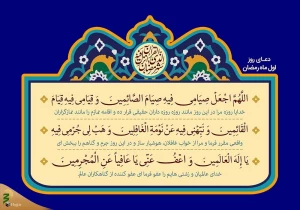 دعـای روز
اول ماه رمضان
اللَّهُمَّ اجْعَلْ صِیَامِی فِیهِ صِیَامَ الصَّائِمِینَ وَ قِیَامِی فِیهِ قِیَامَ
خدایا روزه مرا در این روز مانند روزه روزه داران حقیقی قرار ده و اقامه نمازم را مانند نمازگزاران
الْقَائِمِینَ وَ نَبِّهْنِی فِیهِ عَنْ نَوْمَةِ الْغَافِلِینَ وَ هَبْ لِی جُرْمِی فِیهِ
واقعی مقرر فرما و مرا از خواب غافلان، هوشیار ساز و در این روز جرم و گناهم را ببخش ای
یَا إِلَهَ الْعَالَمِینَ وَ اعْفُ عَنِّی یَا عَافِیاً عَنِ الْمُجْرِمِینَ
خدای عالمیان و زشتی هایم را عفو فرما ای عفو کننده از گناهکاران عالم